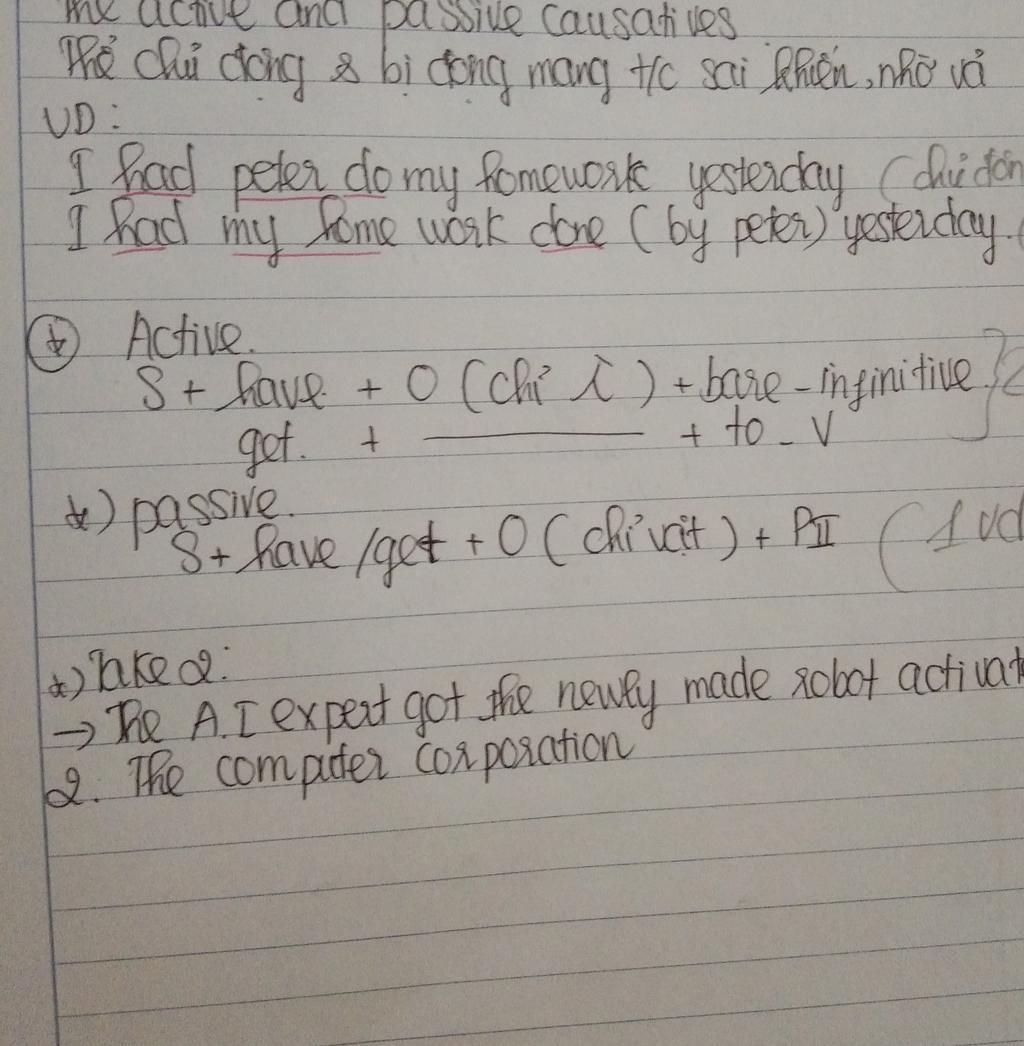 The active and passive causatives
Thể chủ động & bị động mang t/c sai khiến, nhờ vả
VD:
I had peter do my homework yesterday (chủ độn
I had my home work done (by peter) yesterday. (
Active.
S + have + O (chỉ ) + bare-infinitive }
get. + ——— + to - V
*) passive.
S + have /get + O (chỉ vật) + PII (1 vd
*) Take 2:
→ The A.I expert got the newly made robot activat
2. The computer corporation